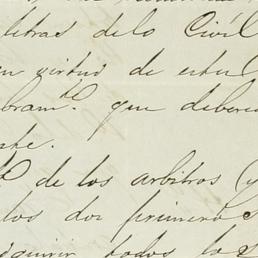 letras de lo Civil
en virtud de
bram.te que debere
de los arbitros (y
los dos primeros
quirir todos los